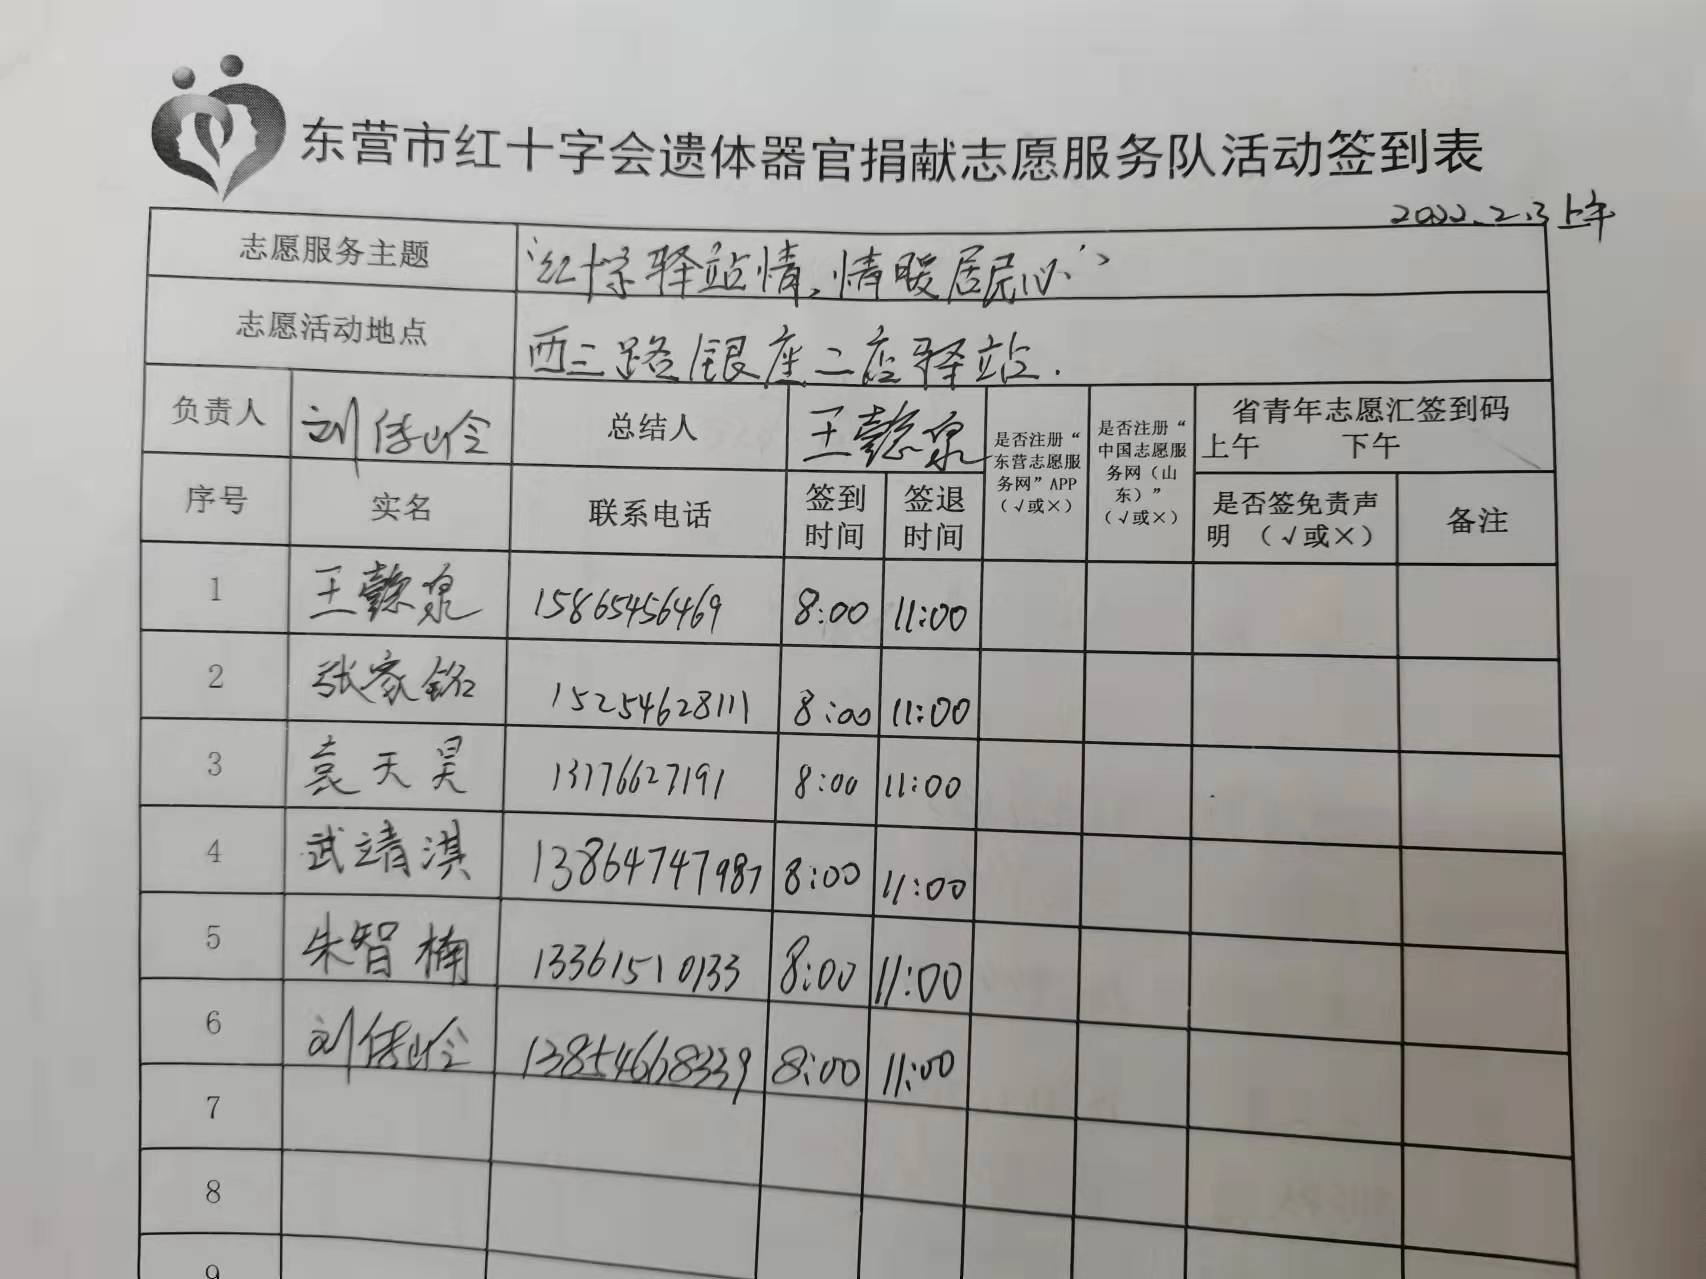 东营市红十字会遗体器官捐献志愿服务队活动签到表
2022.2.3上午
志愿服务主题 “红十字驿站情,情暖居民心”
志愿活动地点 西三路银座二店驿站.
负责人 刘佳岭 总结人 王懿泉 是否注册“东营志愿服务网”APP（√或×） 是否注册“中国志愿服务网（山东）”（√或×） 省青年志愿汇签到码
上午 下午
序号 实名 联系电话 签到时间 签退时间 是否签免责声明 （√或×） 备注
1 王懿泉 15865456469 8:00 11:00
2 张家铭 15254628111 8:00 11:00
3 袁天昊 13176627191 8:00 11:00
4 武靖淇 13864747987 8:00 11:00
5 朱智楠 13361510133 8:00 11:00
6 刘佳岭 13854668339 8:00 11:00
7
8
9